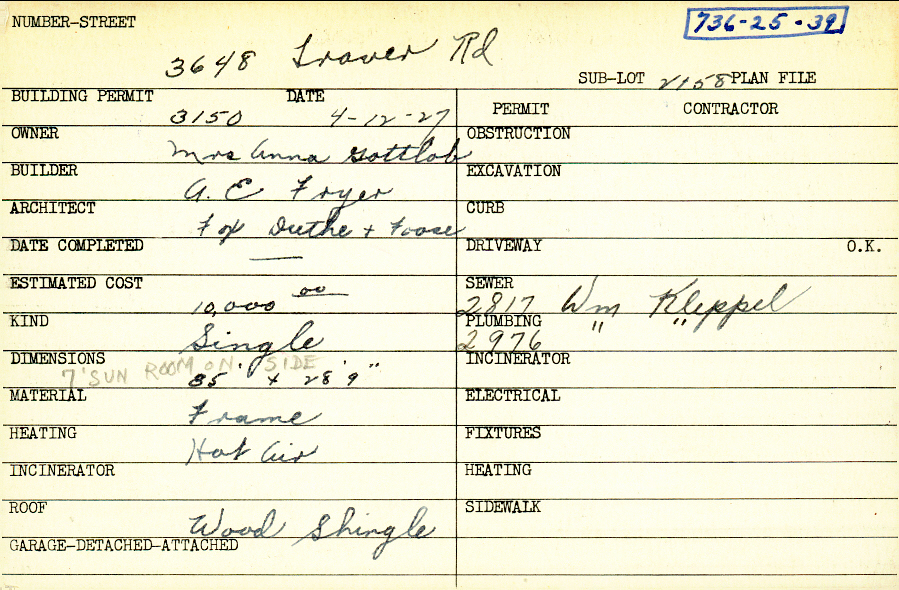 NUMBER-STREET
736-25-39
3648 Traver Rd
SUB-LOT V158 PLAN FILE
BUILDING PERMIT 3150 DATE 4-12-27
PERMIT CONTRACTOR
OWNER Mrs Anna Gottlob
OBSTRUCTION
BUILDER A. E Fryer
EXCAVATION
ARCHITECT Fox Duthe + Foose
CURB
DATE COMPLETED —
DRIVEWAY O.K.
ESTIMATED COST 10,000 00
SEWER 2817 Wm Kleppel
KIND Single
PLUMBING 2976 " "
DIMENSIONS 35' x 28'9"
7' SUN ROOM ON SIDE
INCINERATOR
MATERIAL Frame
ELECTRICAL
HEATING Hot Air
FIXTURES
INCINERATOR
HEATING
ROOF Wood Shingle
SIDEWALK
GARAGE-DETACHED-ATTACHED